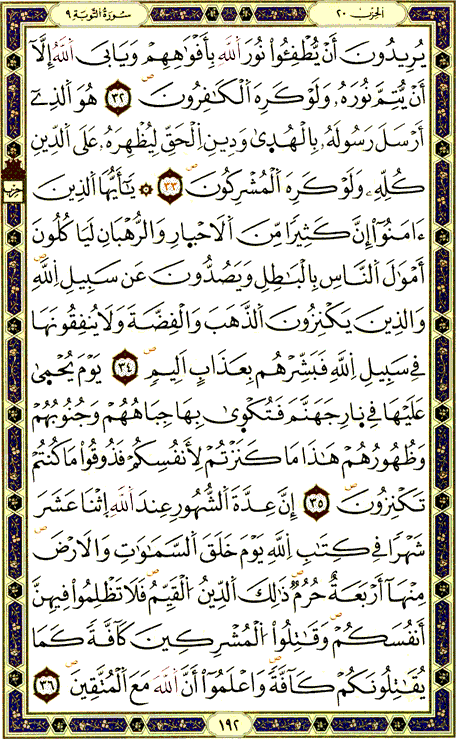 سورة التوبة ٩
الحزب ٢٠
يُرِيدُونَ أَنْ يُّطْفِئُوا نُورَ اَللَّهِ بِأَفْوَٰهِهِمْ وَيَابَى اَللَّهُ إِلَّآ
أَنْ يُّتِمَّ نُورَهُۥ وَلَوْ كَرِهَ اَلْكَٰفِرُونَ ٣٢ هُوَ اَلذِےٓ
أَرْسَلَ رَسُولَهُۥ بِالْهُد۪ىٰ وَدِينِ اِلْحَقِّ لِيُظْهِرَهُۥ عَلَى اَلدِّينِ
كُلِّهِۦ وَلَوْ كَرِهَ اَلْمُشْرِكُونَ ٣٣ ۞ يَٰٓأَيُّهَا اَلذِينَ
ءَامَنُوٓاْ إِنَّ كَثِيرًا مِّنَ اَلَاحْب۪ارِ وَالرُّهْبَانِ لَيَاكُلُونَ
أَمْوَٰلَ اَلنَّاسِ بِالْبَٰطِلِ وَيَصُدُّونَ عَن سَبِيلِ اِللَّهِ
وَالذِينَ يَكْنِزُونَ اَلذَّهَبَ وَالْفِضَّةَ وَلَا يُنفِقُونَهَا
فِے سَبِيلِ اِللَّهِ فَبَشِّرْهُم بِعَذَابٍ اَلِيمٍ ٣٤ يَوْمَ يُحْم۪ىٰ
عَلَيْهَا فِے ن۪ارِ جَهَنَّمَ فَتُكْو۪ىٰ بِهَا جِبَاهُهُمْ وَجُنُوبُهُمْ
وَظُهُورُهُمْ هَٰذَا مَا كَنَزْتُمْ لِأَنفُسِكُمْ فَذُوقُواْ مَا كُنتُمْ
تَكْنِزُونَ ٣٥ إِنَّ عِدَّةَ اَلشُّهُورِ عِندَ اَللَّهِ اِثْنَا عَشَرَ
شَهْرًا فِے كِتَٰبِ اِللَّهِ يَوْمَ خَلَقَ اَلسَّمَٰوَٰتِ وَالَارْضَ
مِنْهَآ أَرْبَعَةٌ حُرُمٌ ذَٰلِكَ اَلدِّينُ اَلْقَيِّمُ فَلَا تَظْلِمُواْ فِيهِنَّ
أَنفُسَكُمْ وَقَٰتِلُواْ اُلْمُشْرِكِينَ كَآفَّةً كَمَا
يُقَٰتِلُونَكُمْ كَآفَّةً وَاعْلَمُوٓاْ أَنَّ اَللَّهَ مَعَ اَلْمُتَّقِينَ ٣٦
١٩٢